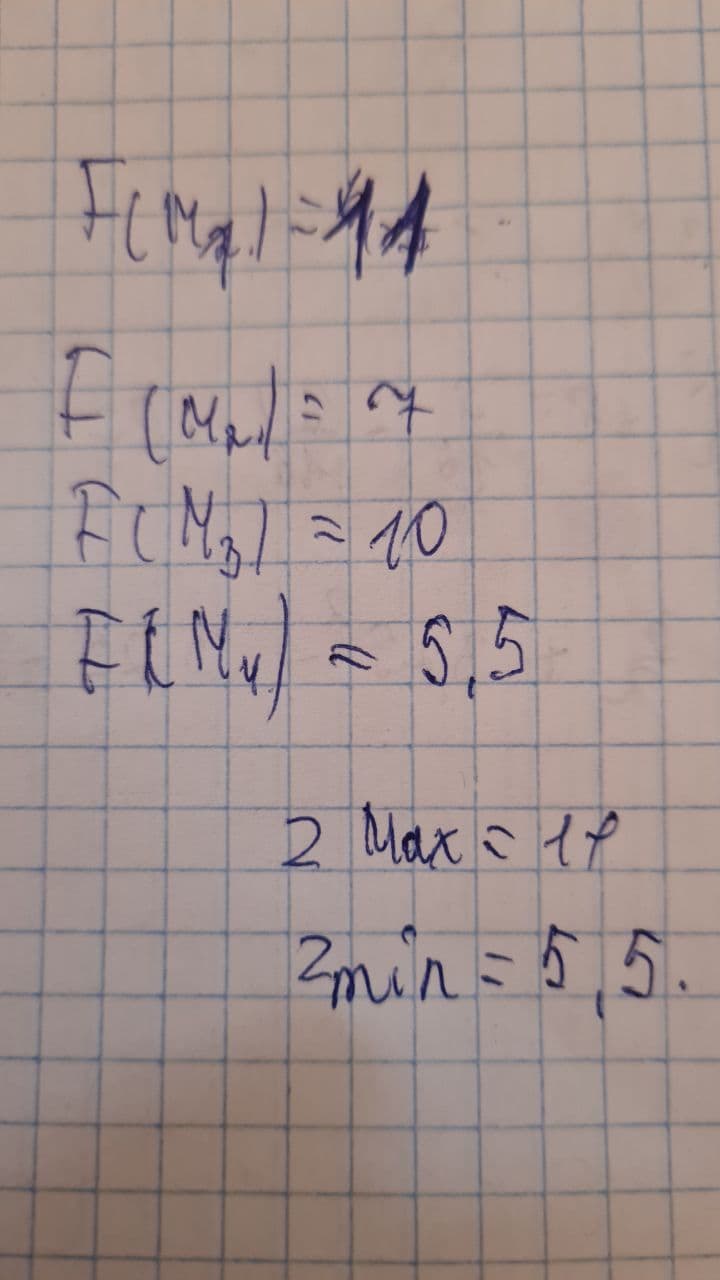 F(M₁)=11
F(M₂)=7
F(M₃)=10
F(M₄)=5,5
Z Max=11
Zmin=5,5.